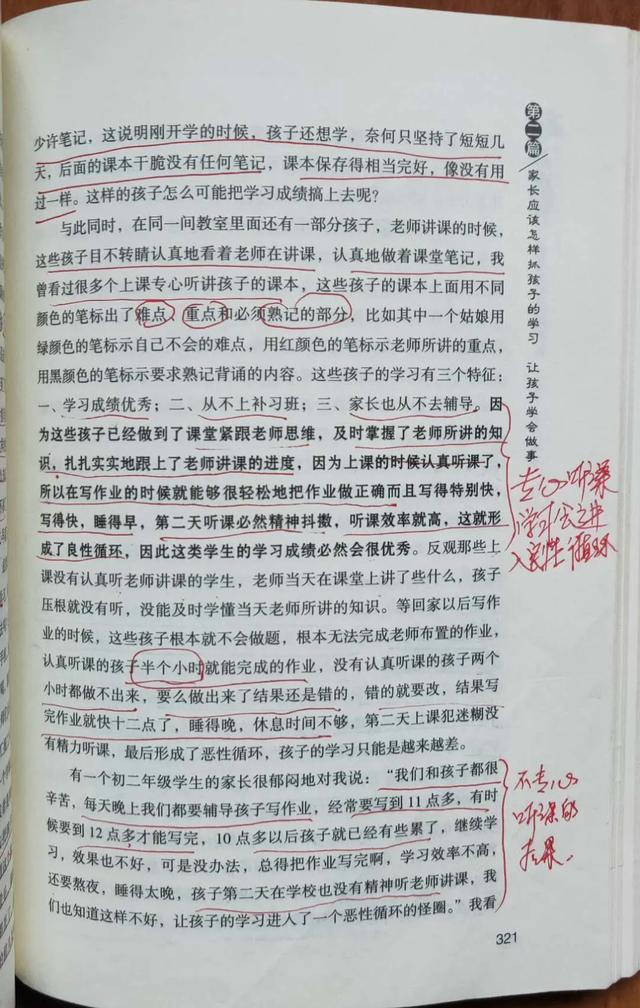 少许笔记，这说明刚开学的时候，孩子还想学，奈何只坚持了短短几
天，后面的课本干脆没有任何笔记，课本保存得相当完好，像没有用
过一样。这样的孩子怎么可能把学习成绩搞上去呢？
与此同时，在同一间教室里面还有一部分孩子，老师讲课的时候，
这些孩子目不转睛认真地看着老师在讲课，认真地做着课堂笔记，我
曾看过很多个上课专心听讲孩子的课本，这些孩子的课本上面用不同
颜色的笔标出了难点、重点和必须熟记的部分，比如其中一个姑娘用
绿颜色的笔标示自己不会的难点，用红颜色的笔标示老师所讲的重点，
用黑颜色的笔标示要求熟记背诵的内容。这些孩子的学习有三个特征：
一、学习成绩优秀；二、从不上补习班；三、家长也从不去辅导。因
为这些孩子已经做到了课堂紧跟老师思维，及时掌握了老师所讲的知
识，扎扎实实地跟上了老师讲课的进度，因为上课的时候认真听课了，
所以在写作业的时候就能够很轻松地把作业做正确而且写得特别快，
写得快，睡得早，第二天听课必然精神抖擞，听课效率就高，这就形
成了良性循环，因此这类学生的学习成绩必然会很优秀。反观那些上
课没有认真听老师讲课的学生，老师当天在课堂上讲了些什么，孩子
压根就没有听，没能及时学懂当天老师所讲的知识。等回家以后写作
业的时候，这些孩子根本就不会做题，根本无法完成老师布置的作业，
认真听课的孩子半个小时就能完成的作业，没有认真听课的孩子两个
小时都做不出来，要么做出来了结果还是错的，错的就要改，结果写
完作业就快十二点了，睡得晚，休息时间不够，第二天上课犯迷糊没
有精力听课，最后形成了恶性循环，孩子的学习只能是越来越差。
有一个初二年级学生的家长很郁闷地对我说：“我们和孩子都很
辛苦，每天晚上我们都要辅导孩子写作业，经常要写到11点多，有时
候要到12点多才能写完，10点多以后孩子就已经有些累了，继续学
习，效果也不好，可是没办法，总得把作业写完啊，学习效率不高，
还要熬夜，睡得太晚，孩子第二天在学校也没有精神听老师讲课，我
们也知道这样不好，让孩子的学习进入了一个恶性循环的怪圈。”我看
第二篇
家长应该怎样抓孩子的学习 让孩子学会做事
专心听课
学习会进
入良性循环
不专心
听课的
后果.
321